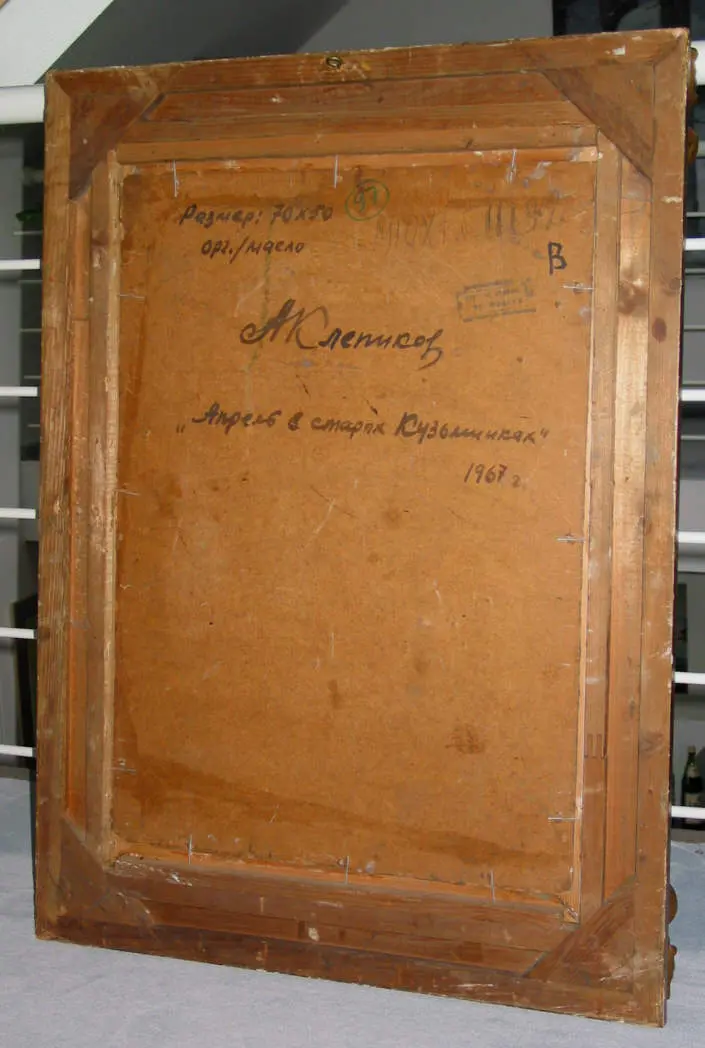 Размер: 70x50
орг./масло
91
В
АКлепиков
„Апрель в старых Кузьминках“
1967 г.